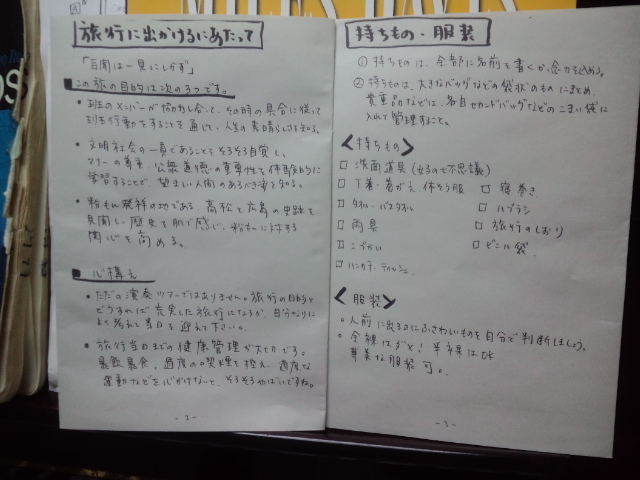 MILES DAVIS
旅行に出かけるにあたって
「百聞は一見にしかず」
■この旅の目的は次の3つです。
・班のメンバーが協力し合って、その時の具合に従って
班行動をすることを通して、人生の素晴らしさを知る。
・文明社会の一員であることをそろそろ自覚し、
マナーの尊率、公衆道徳の重要性を体験的に
学習することで、望ましい人間のあるべき姿を知る。
・粉もん発祥の地である、高松と広島の史跡を
見聞し、歴史を肌で感じ、粉もんに対する
関心を高める。
■心構え
・ただの演奏ツアーではありません。旅行の目的と
どうすれば充実した旅行になるか、自分なりに
よく考えて当日を迎えて下さい。
・旅行当日までの健康管理が大切です。
暴飲暴食、過度の喫煙を控え、適度な
運動などを心がけないと、そろそろやばいですね。
-2-
持ちもの・服装
① 持ちものは、全部に名前を書くか、念力を込める。
② 持ちものは、大きなバッグなどの袋状のものにまとめ、
貴重品などは、各自セカンドバッグなどのこまい袋に
入れて管理すること。
<持ちもの>
□ 洗面道具(女子の七不思議)
□ 下着・着がえ、体そう服
□ 寝巻き
□ タオル・バスタオル
□ ハブラシ
□ 雨具
□ 旅行のしおり
□ こづかい
□ ビニル袋
□ ハンカチ・ティッシュ
<服装>
・人前に出るのにふさわしいものを自分で判断しましょう。
・全裸はダメ!半裸はOK
華美な服装 可。
-3-